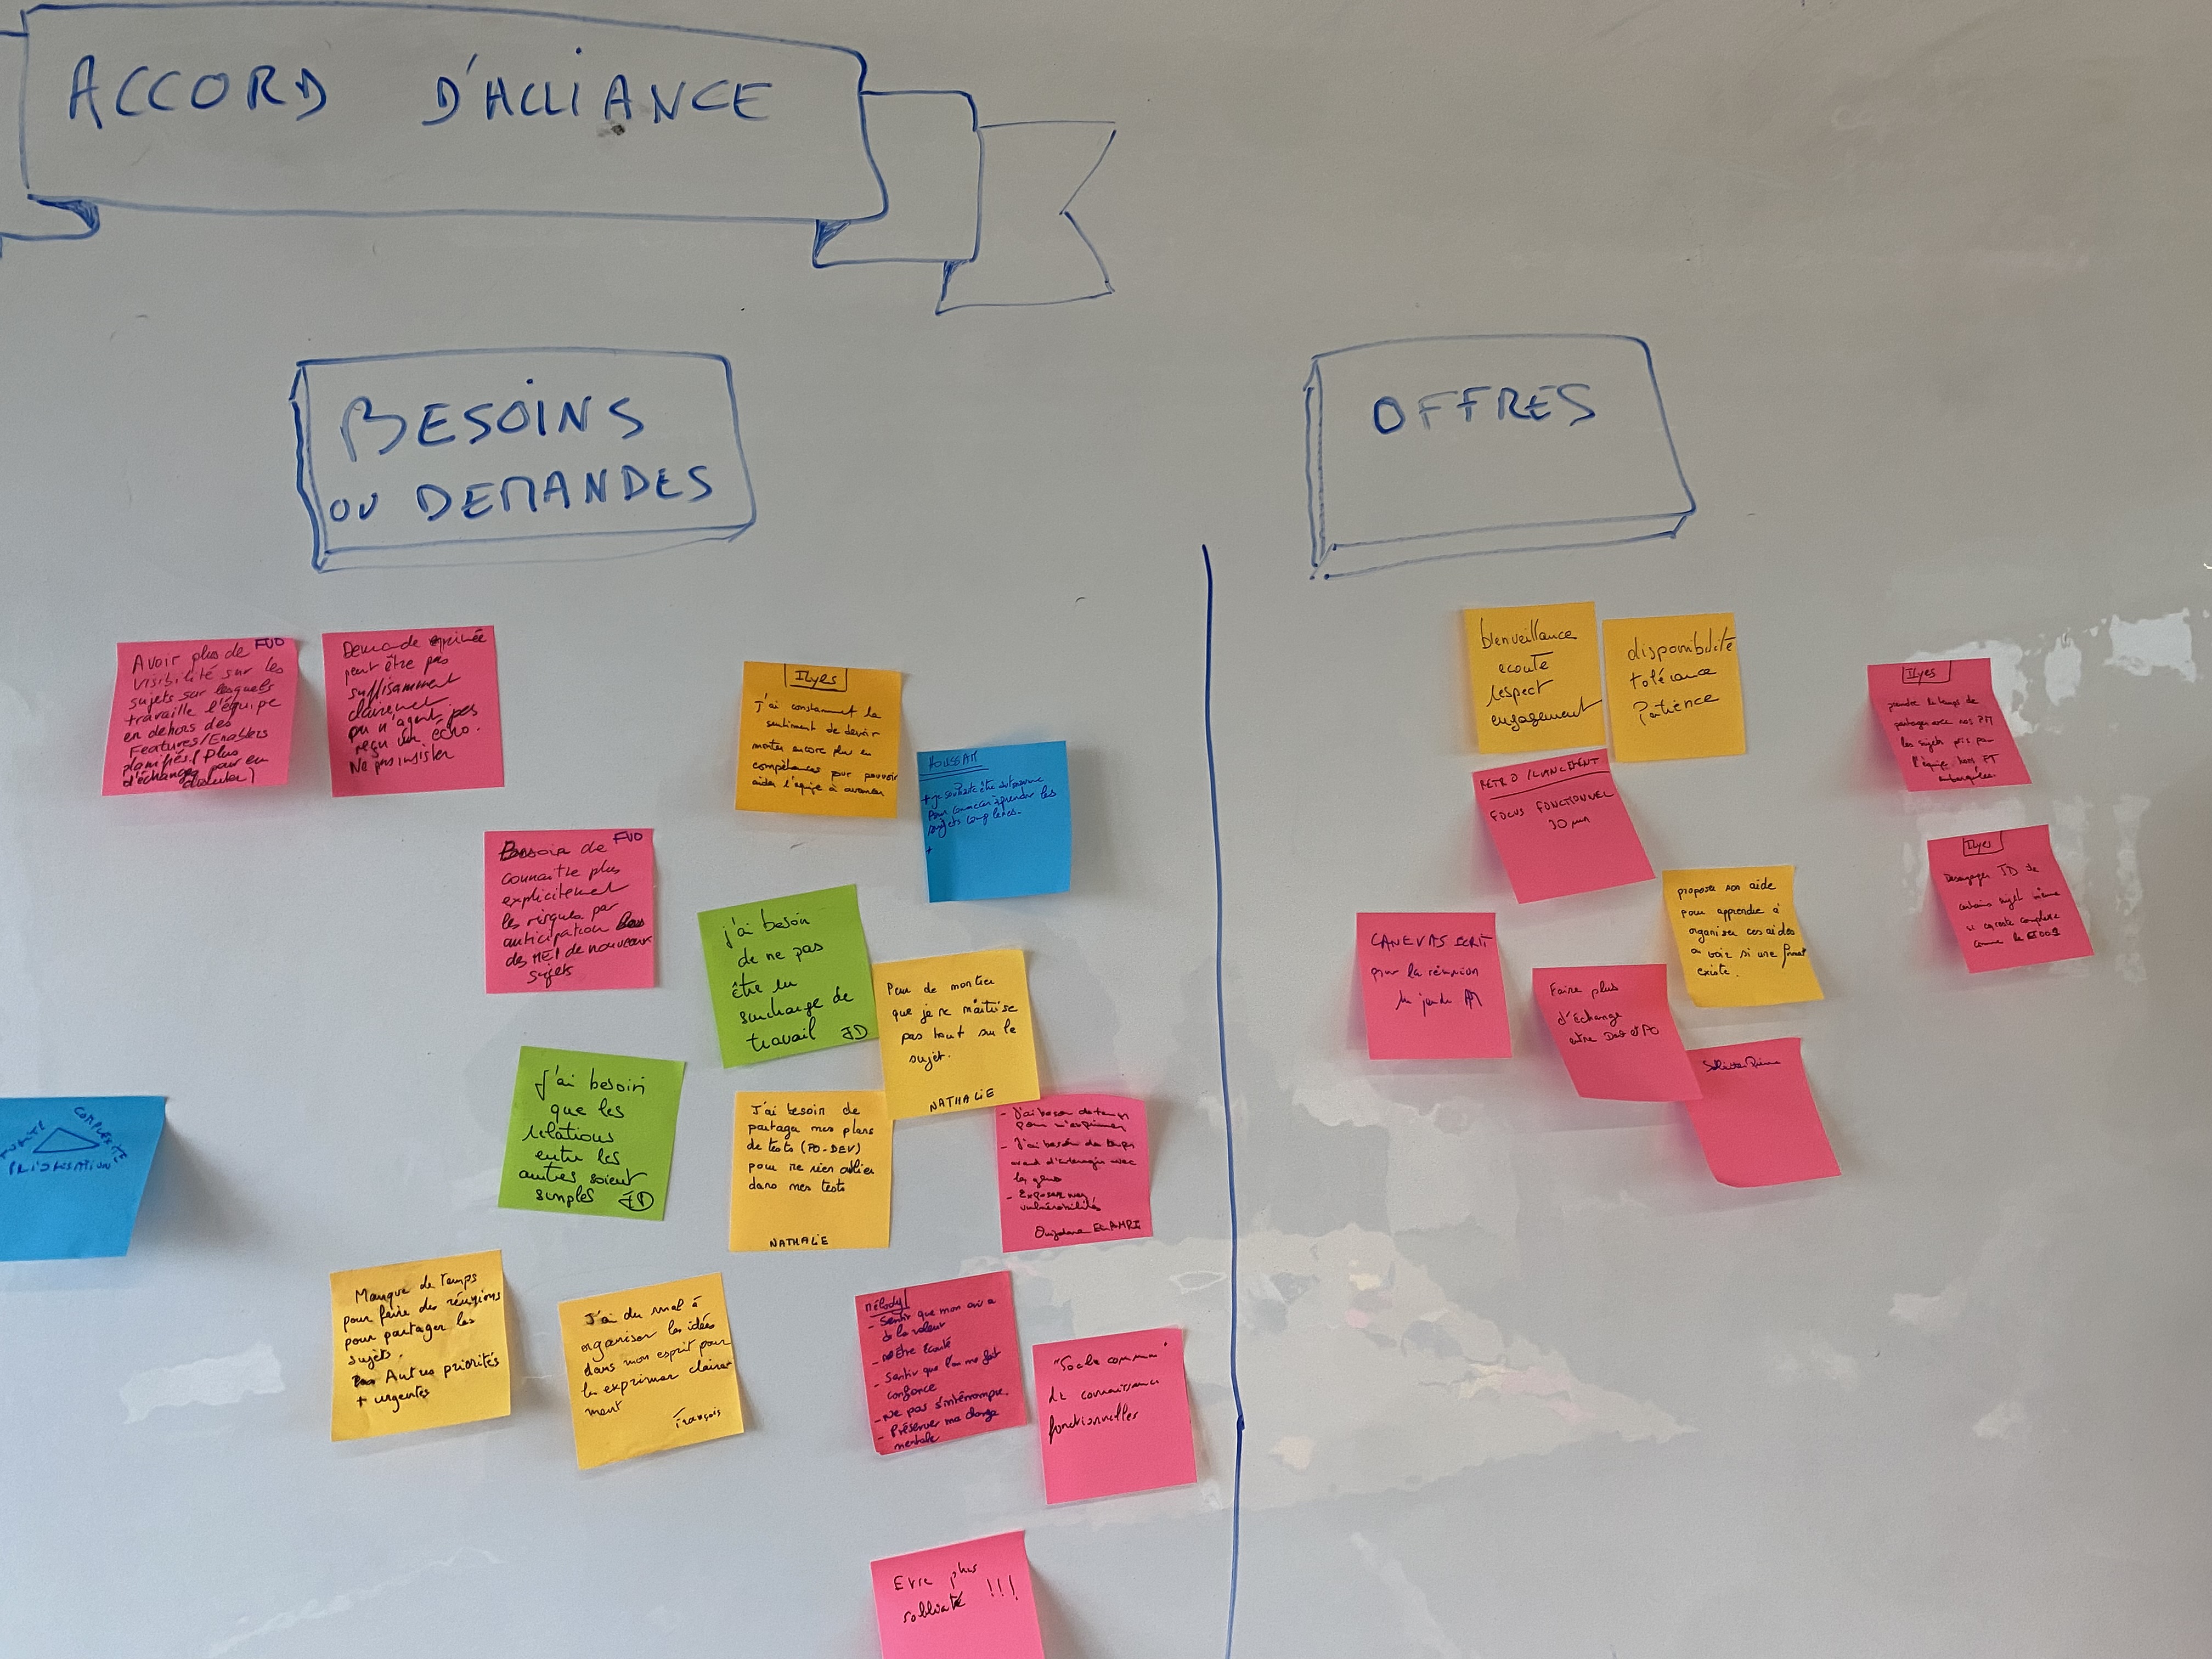 ACCORD D'ALLIANCE
BESOINS
OU DEMANDES
OFFRES
Avoir plus de FUO
visibilité sur les
sujets sur lesquels
travaille l'équipe
en dehors des
Features/Enablers
planifiés (Plus
d'échanges pour en
discuter)
Demande exprimée
peut être pas
suffisamment
clairement
ou n'ayant pas
reçu un écho.
Ne pas insister
Ilyes
j'ai constamment le
sentiment de devoir
monter encore plus en
compétences pour pouvoir
aider l'équipe à avancer
HOUSSAM
+ je souhaite être autonome
Pour commencer à prendre les
sujets complexes.
+
Besoin de FUO
connaître plus
explicitement
les risques par
anticipation
des MEP de nouveaux
sujets
j'ai besoin
de ne pas
être en
surcharge de
travail JD
Peur de montrer
que je ne maîtrise
pas tout sur le
sujet.
NATHALIE
J'ai besoin
que les
relations
entre les
autres soient
simples JD
J'ai besoin de
partager mes plans
de tests (PO-DEV)
pour ne rien oublier
dans mes tests
NATHALIE
- J'ai besoin de temps
pour m'exprimer
- J'ai besoin de temps
avant d'interagir avec
les gens
- Exposer mes
vulnérabilités
COMPLEXITE
PRIORISATION
Manque de temps
pour faire des réunions
pour partager les
sujets.
Autres priorités
+ urgentes
J'ai du mal à
organiser les idées
dans mon esprit pour
les exprimer claire
ment
François
Mélody
- Sentir que mon avis a
de la valeur
- Être écouté
- Sentir que l'on me fait
confiance
- Ne pas s'interrompre.
- Préserver ma charge
mentale
"Socle commun"
de connaissance
fonctionnelles
Etre plus
sollicité !!!
bienveillance
ecoute
respect
engagement
disponibilité
tolérance
Patience
RETRO /LANCEMENT
FOCUS FONCTIONNEL
30 min
Ilyes
prendre le temps de
partager avec nos PM
les sujets pris par
l'équipe hors FT
embarquées
Ilyes
Desengager JD de
certains sujet même
si ça reste complexe
comme le
propose son aide
pour apprendre à
organiser ces aides
a voir si une format
existe.
CANEVAS ECRIT
pour la réunion
du jeudi AM
Faire plus
d'échange
entre Dev et PO